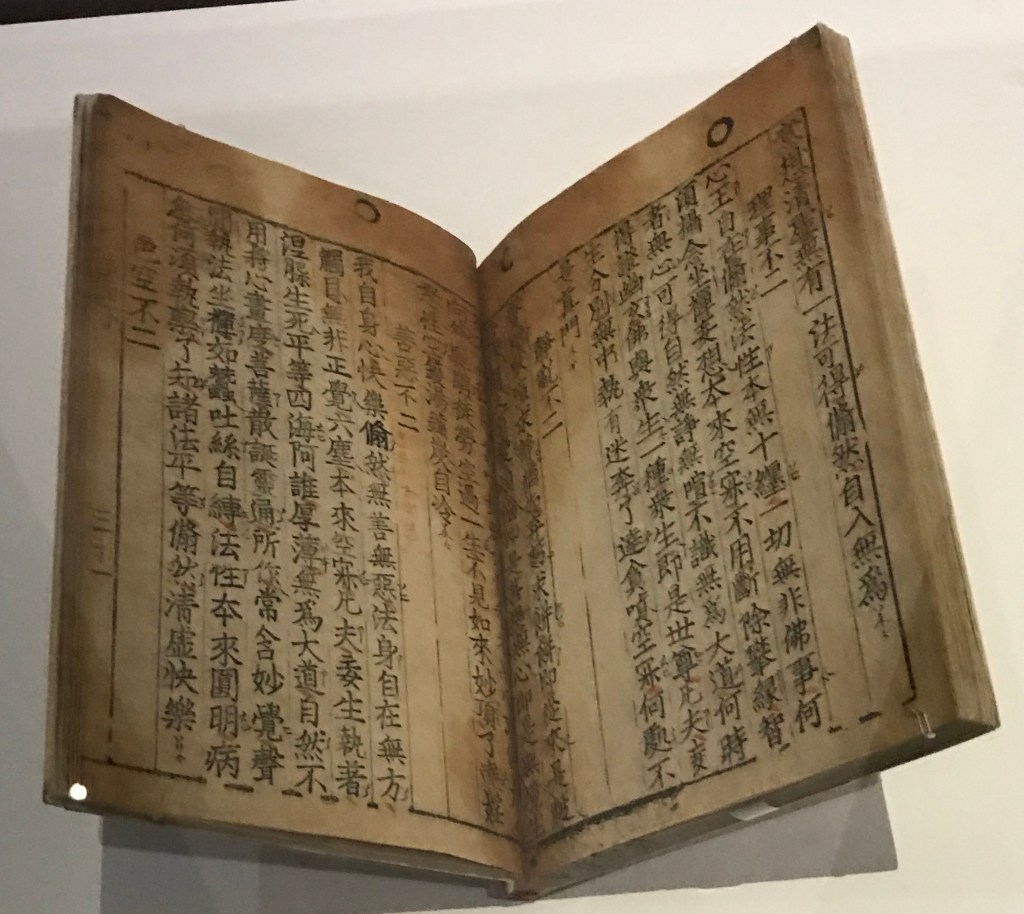 想清虛無有一法可得翛然自入無爲
理事不二
心王自在翛然法性本無十纏一切無非佛事何
須攝念坐禪妄想本來空寂不用斷除攀緣智
者無心可得自然無諍無喧不識無爲大道何時
得證幽玄佛與衆生一種衆生即是世尊凡夫妄
生分別無中執有迷奔了達貪嗔空寂何處不
是眞門
靜亂不二
求餅餅即從來是麵
無心即是無
勞空過一生不見如來妙頂了達婬
性空鑊湯爐炭自冷
善惡不二
我自身心快樂翛然無善無惡法身自在無方
觸目無非正覺六塵本來空寂凡夫妄生執著
涅槃生死平等四海阿誰厚薄無爲大道自然不
用將心畫度菩薩散誕靈通所作常含妙覺聲
聞執法坐禪如蠶吐絲自縛法性本來圓明病
愈何須執藥了知諸法平等翛然清虛快樂
色空不二